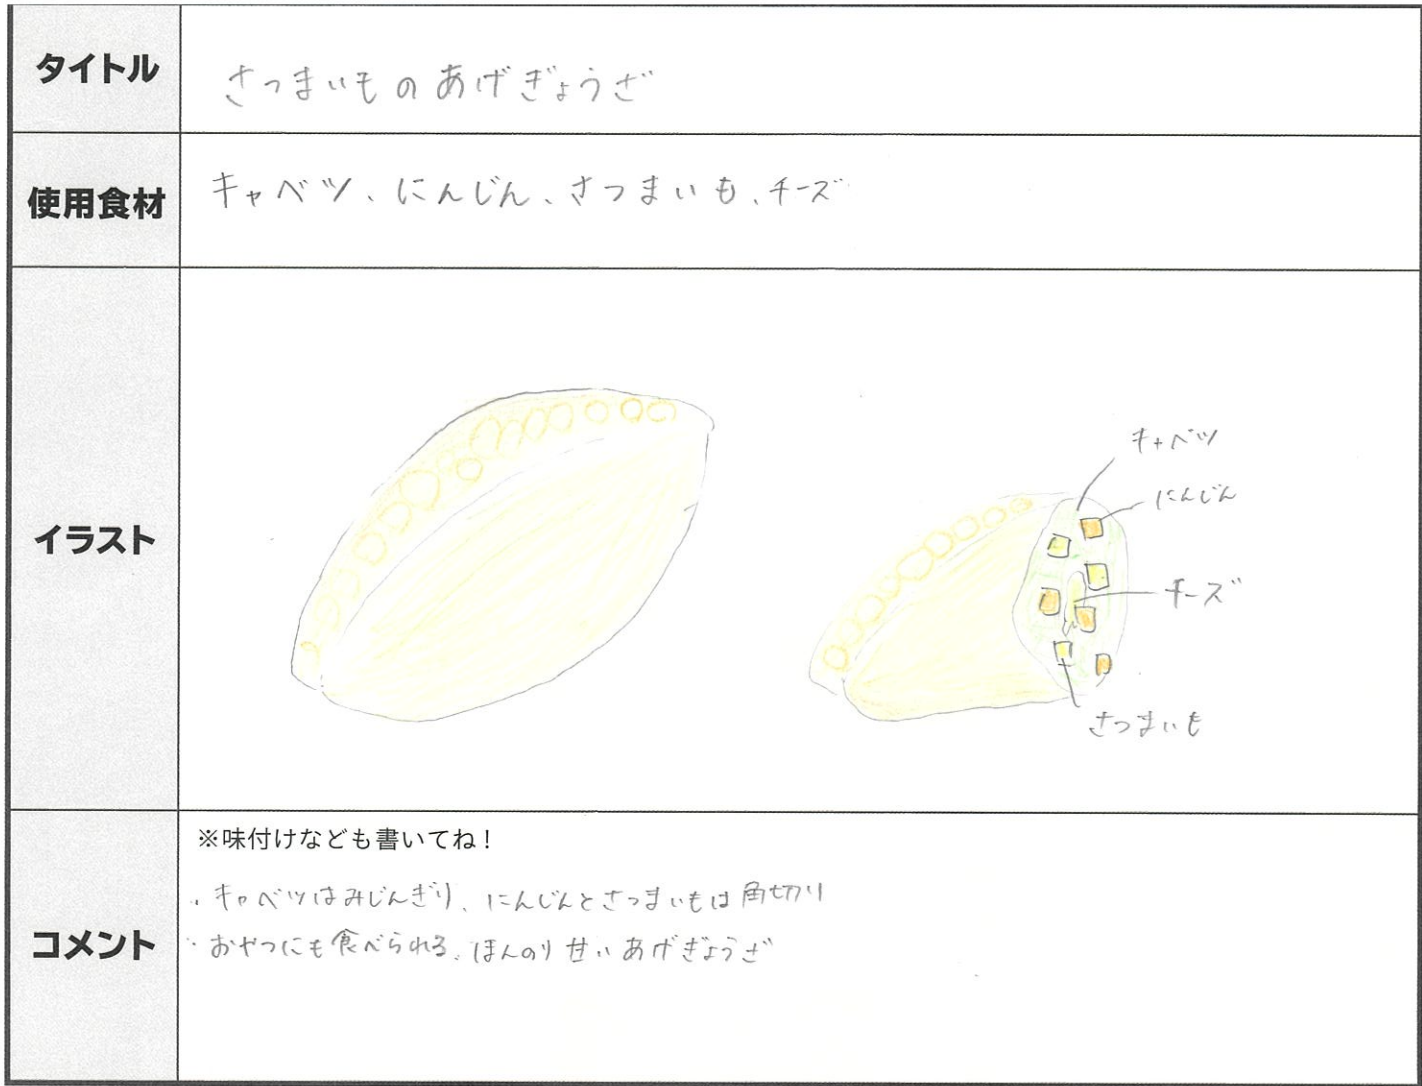 タイトル
さつまいものあげぎょうざ
使用食材
キャベツ、にんじん、さつまいも、チーズ
イラスト
キャベツ
にんじん
チーズ
さつまいも
コメント
※味付けなども書いてね!
・キャベツはみじんぎり、にんじんとさつまいもは角切り
・おやつにも食べられる、ほんのり甘いあげぎょうざ